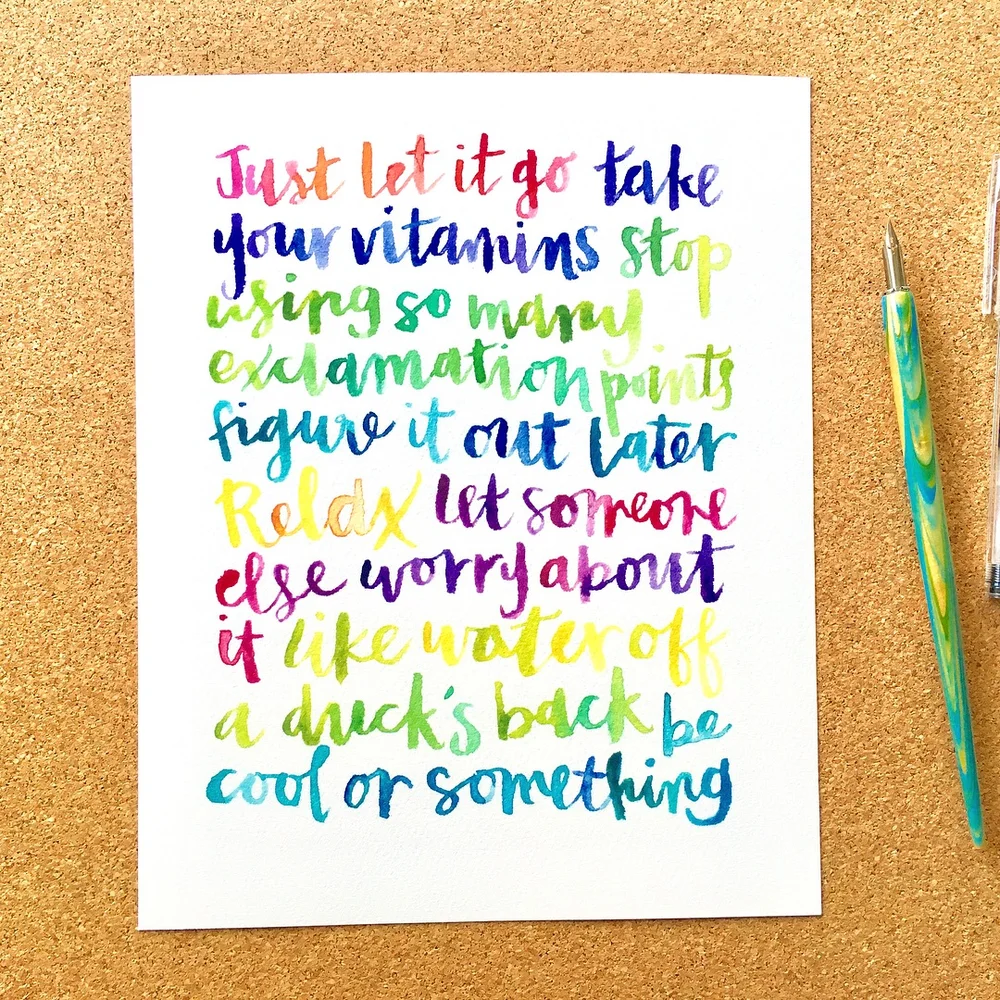 Just let it go take
your vitamins stop
using so many
exclamation points
figure it out later
Relax let someone
else worry about
it like water off
a duck's back be
cool or something